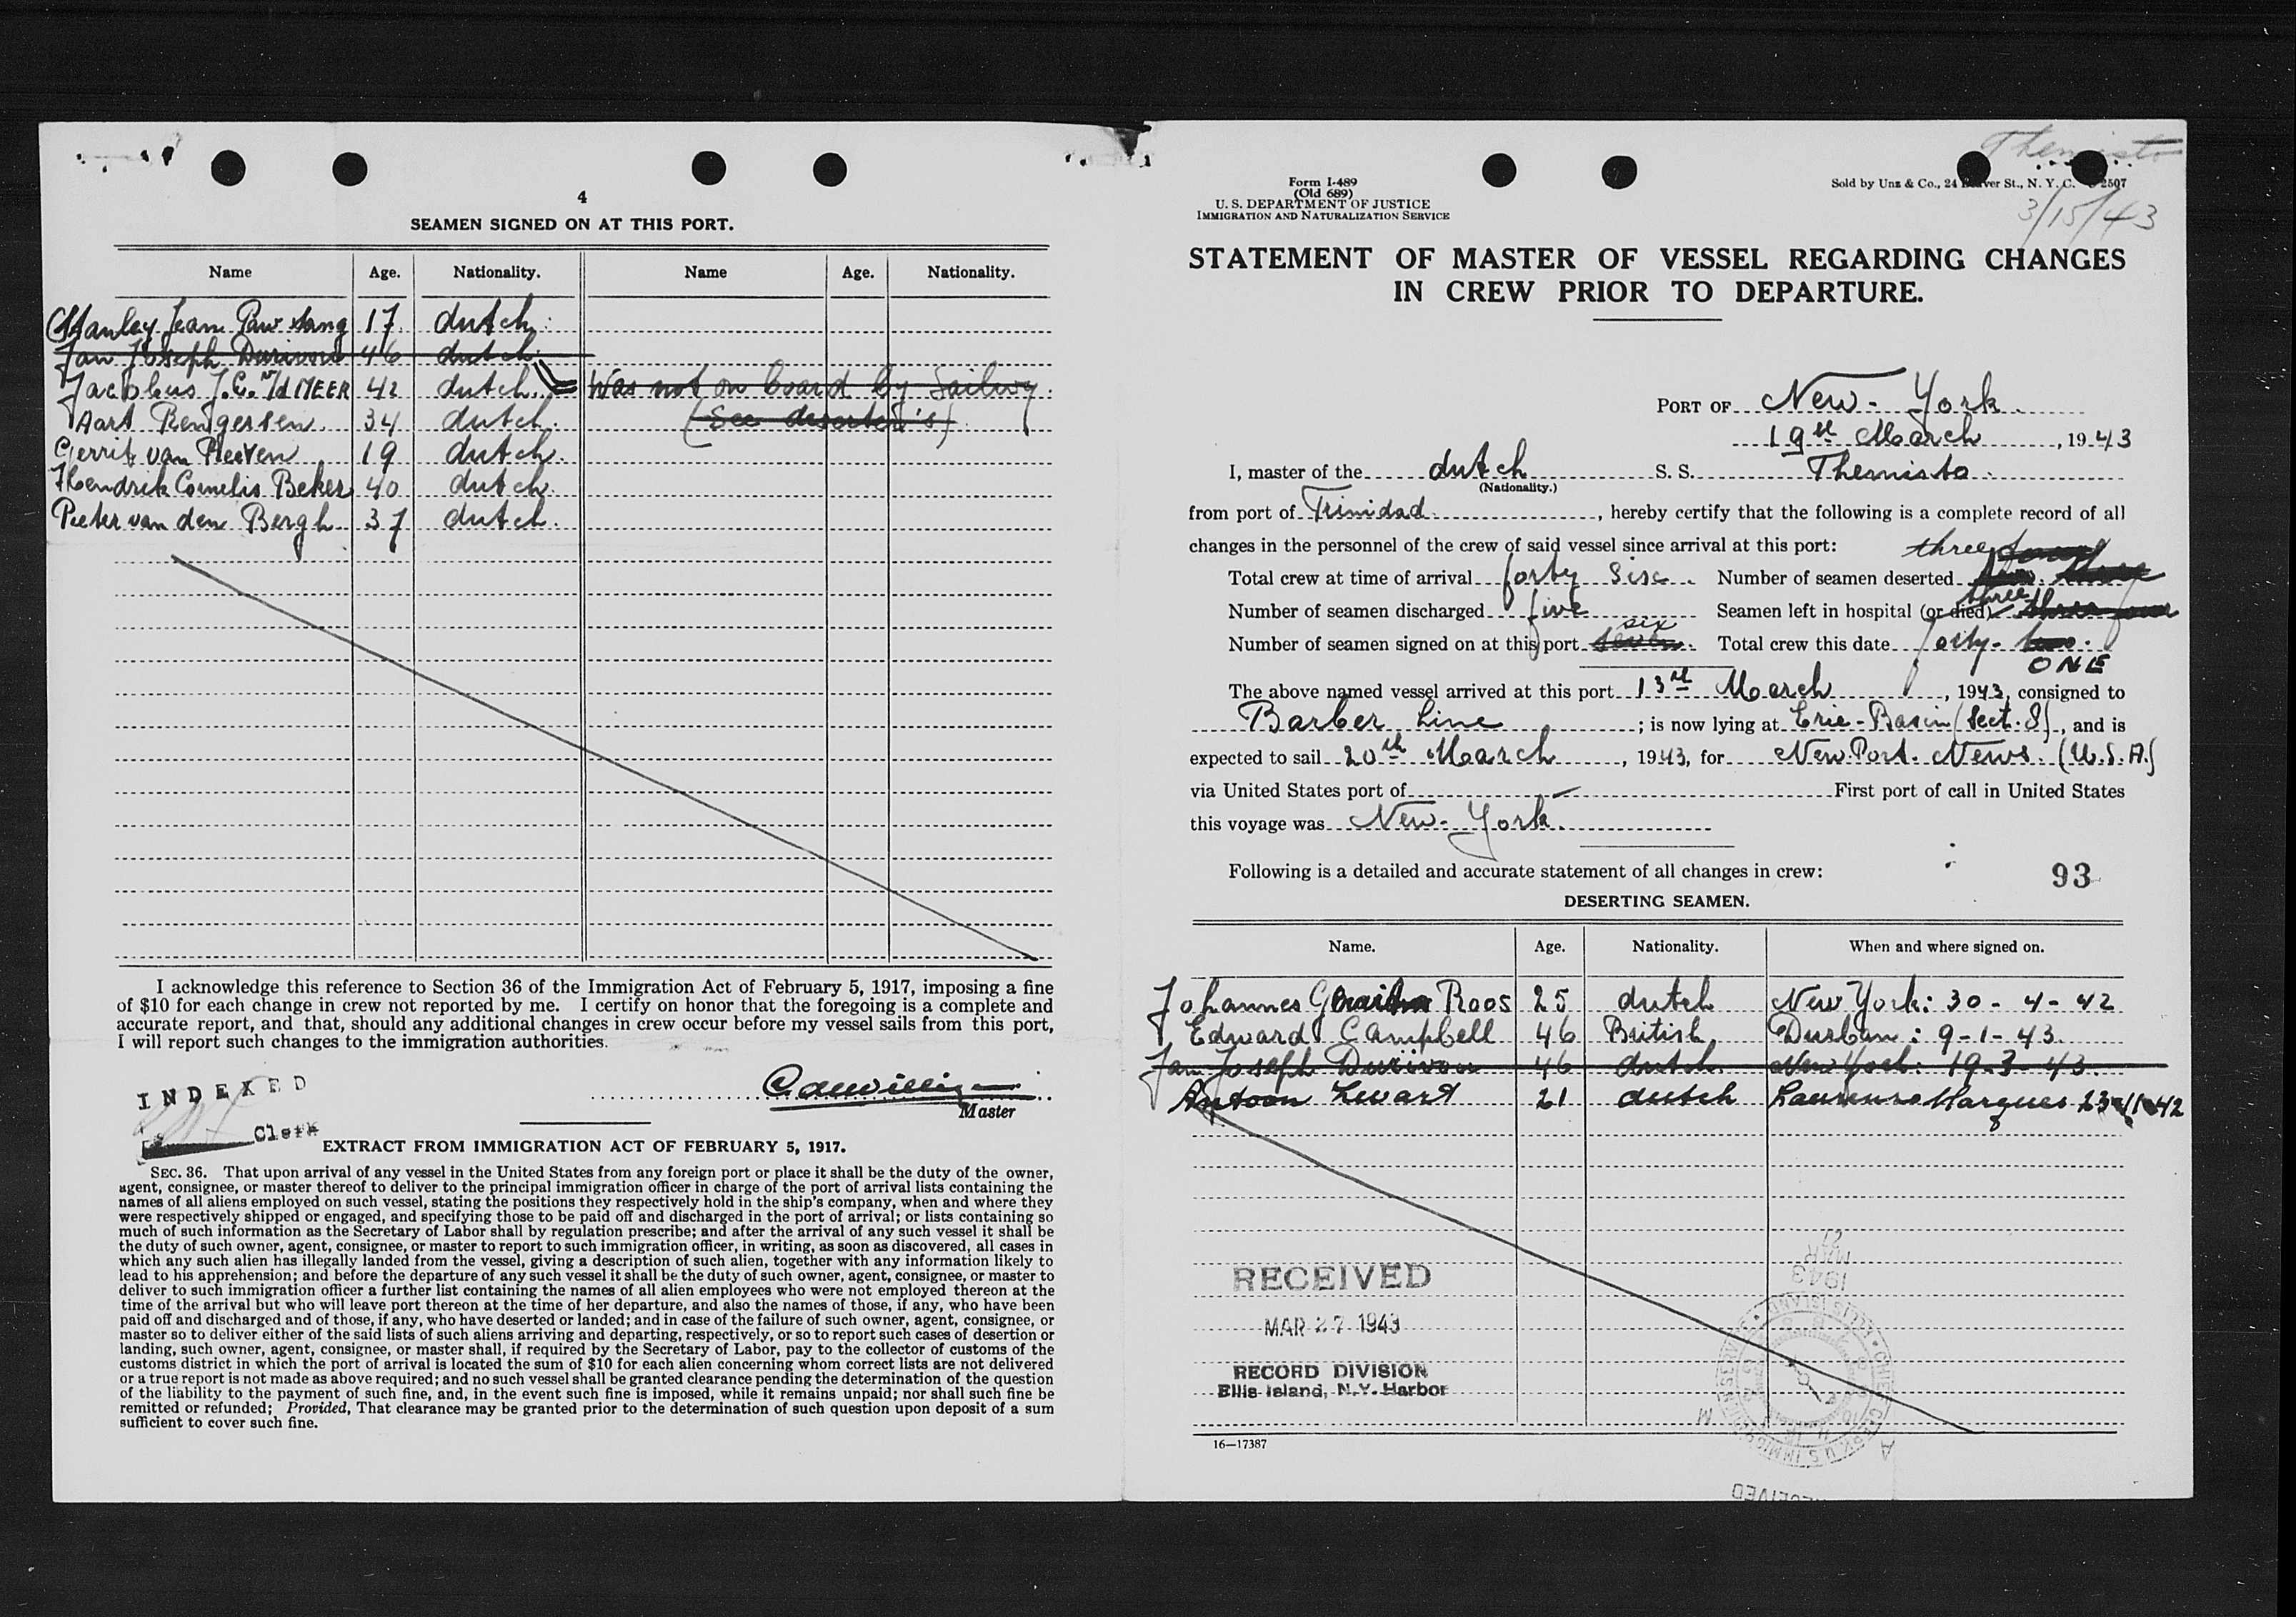 4
SEAMEN SIGNED ON AT THIS PORT.
Name Age. Nationality. Name Age. Nationality.
Stanley Jean Paw Sang 17 dutch.
Jan Joseph 46 dutch.
Jacobus J.C. v/d MEER 42 dutch. Was not on board by sailing.
Aart Rengersen. 34 dutch. (See deserted's)
Gerrit van 19 dutch.
Hendrik Cornelis Beker 40 dutch.
Pieter van den Bergh 37 dutch.
I acknowledge this reference to Section 36 of the Immigration Act of February 5, 1917, imposing a fine
of $10 for each change in crew not reported by me. I certify on honor that the foregoing is a complete and
accurate report, and that, should any additional changes in crew occur before my vessel sails from this port,
I will report such changes to the immigration authorities.
INDEXED
Clerk
Master
EXTRACT FROM IMMIGRATION ACT OF FEBRUARY 5, 1917.
SEC. 36. That upon arrival of any vessel in the United States from any foreign port or place it shall be the duty of the owner,
agent, consignee, or master thereof to deliver to the principal immigration officer in charge of the port of arrival lists containing the
names of all aliens employed on such vessel, stating the positions they respectively hold in the ship's company, when and where they
were respectively shipped or engaged, and specifying those to be paid off and discharged in the port of arrival; or lists containing so
much of such information as the Secretary of Labor shall by regulation prescribe; and after the arrival of any such vessel it shall be
the duty of such owner, agent, consignee, or master to report to such immigration officer, in writing, as soon as discovered, all cases in
which any such alien has illegally landed from the vessel, giving a description of such alien, together with any information likely to
lead to his apprehension; and before the departure of any such vessel it shall be the duty of such owner, agent, consignee, or master to
deliver to such immigration officer a further list containing the names of all alien employees who were not employed thereon at the
time of the arrival but who will leave port thereon at the time of her departure, and also the names of those, if any, who have been
paid off and discharged and of those, if any, who have deserted or landed; and in case of the failure of such owner, agent, consignee, or
master so to deliver either of the said lists of such aliens arriving and departing, respectively, or so to report such cases of desertion or
landing, such owner, agent, consignee, or master shall, if required by the Secretary of Labor, pay to the collector of customs of the
customs district in which the port of arrival is located the sum of $10 for each alien concerning whom correct lists are not delivered
or a true report is not made as above required; and no such vessel shall be granted clearance pending the determination of the question
of the liability to the payment of such fine, and, in the event such fine is imposed, while it remains unpaid; nor shall such fine be
remitted or refunded; Provided, That clearance may be granted prior to the determination of such question upon deposit of a sum
sufficient to cover such fine.
Themisto
3/15/43
Form I-489
(Old 689)
U. S. DEPARTMENT OF JUSTICE
IMMIGRATION AND NATURALIZATION SERVICE
Sold by Unz & Co., 24 St., N. Y. C. 2507
STATEMENT OF MASTER OF VESSEL REGARDING CHANGES
IN CREW PRIOR TO DEPARTURE.
PORT OF New-York.
19th March, 1943
I, master of the dutch S. S. Themisto.
(Nationality.)
from port of Trinidad, hereby certify that the following is a complete record of all
changes in the personnel of the crew of said vessel since arrival at this port: three
Total crew at time of arrival forty six. Number of seamen deserted
Number of seamen discharged five Seamen left in hospital (or died) three
Number of seamen signed on at this port seven. six Total crew this date forty-two. ONE
The above named vessel arrived at this port 13th March, 1943, consigned to
Barber Line; is now lying at Erie-Basin (Sect. 8), and is
expected to sail 20th March, 1943, for New-Port-News. (U.S.A.)
via United States port of — First port of call in United States
this voyage was New-York.
Following is a detailed and accurate statement of all changes in crew:
93
DESERTING SEAMEN.
Name. Age. Nationality. When and where signed on.
Johannes Roos 25 dutch New York: 30-4-42
Edward Campbell 46 British Durban: 9-1-43.
Jan Joseph 46 dutch. New York: 19-3-43.
Antoon Lewart 21 dutch Laurenso Marques 23 11 42
RECEIVED
MAR 27 1943
RECORD DIVISION
Ellis Island, N.Y. Harbor
1943
MAR
27
16—17387
RECEIVED